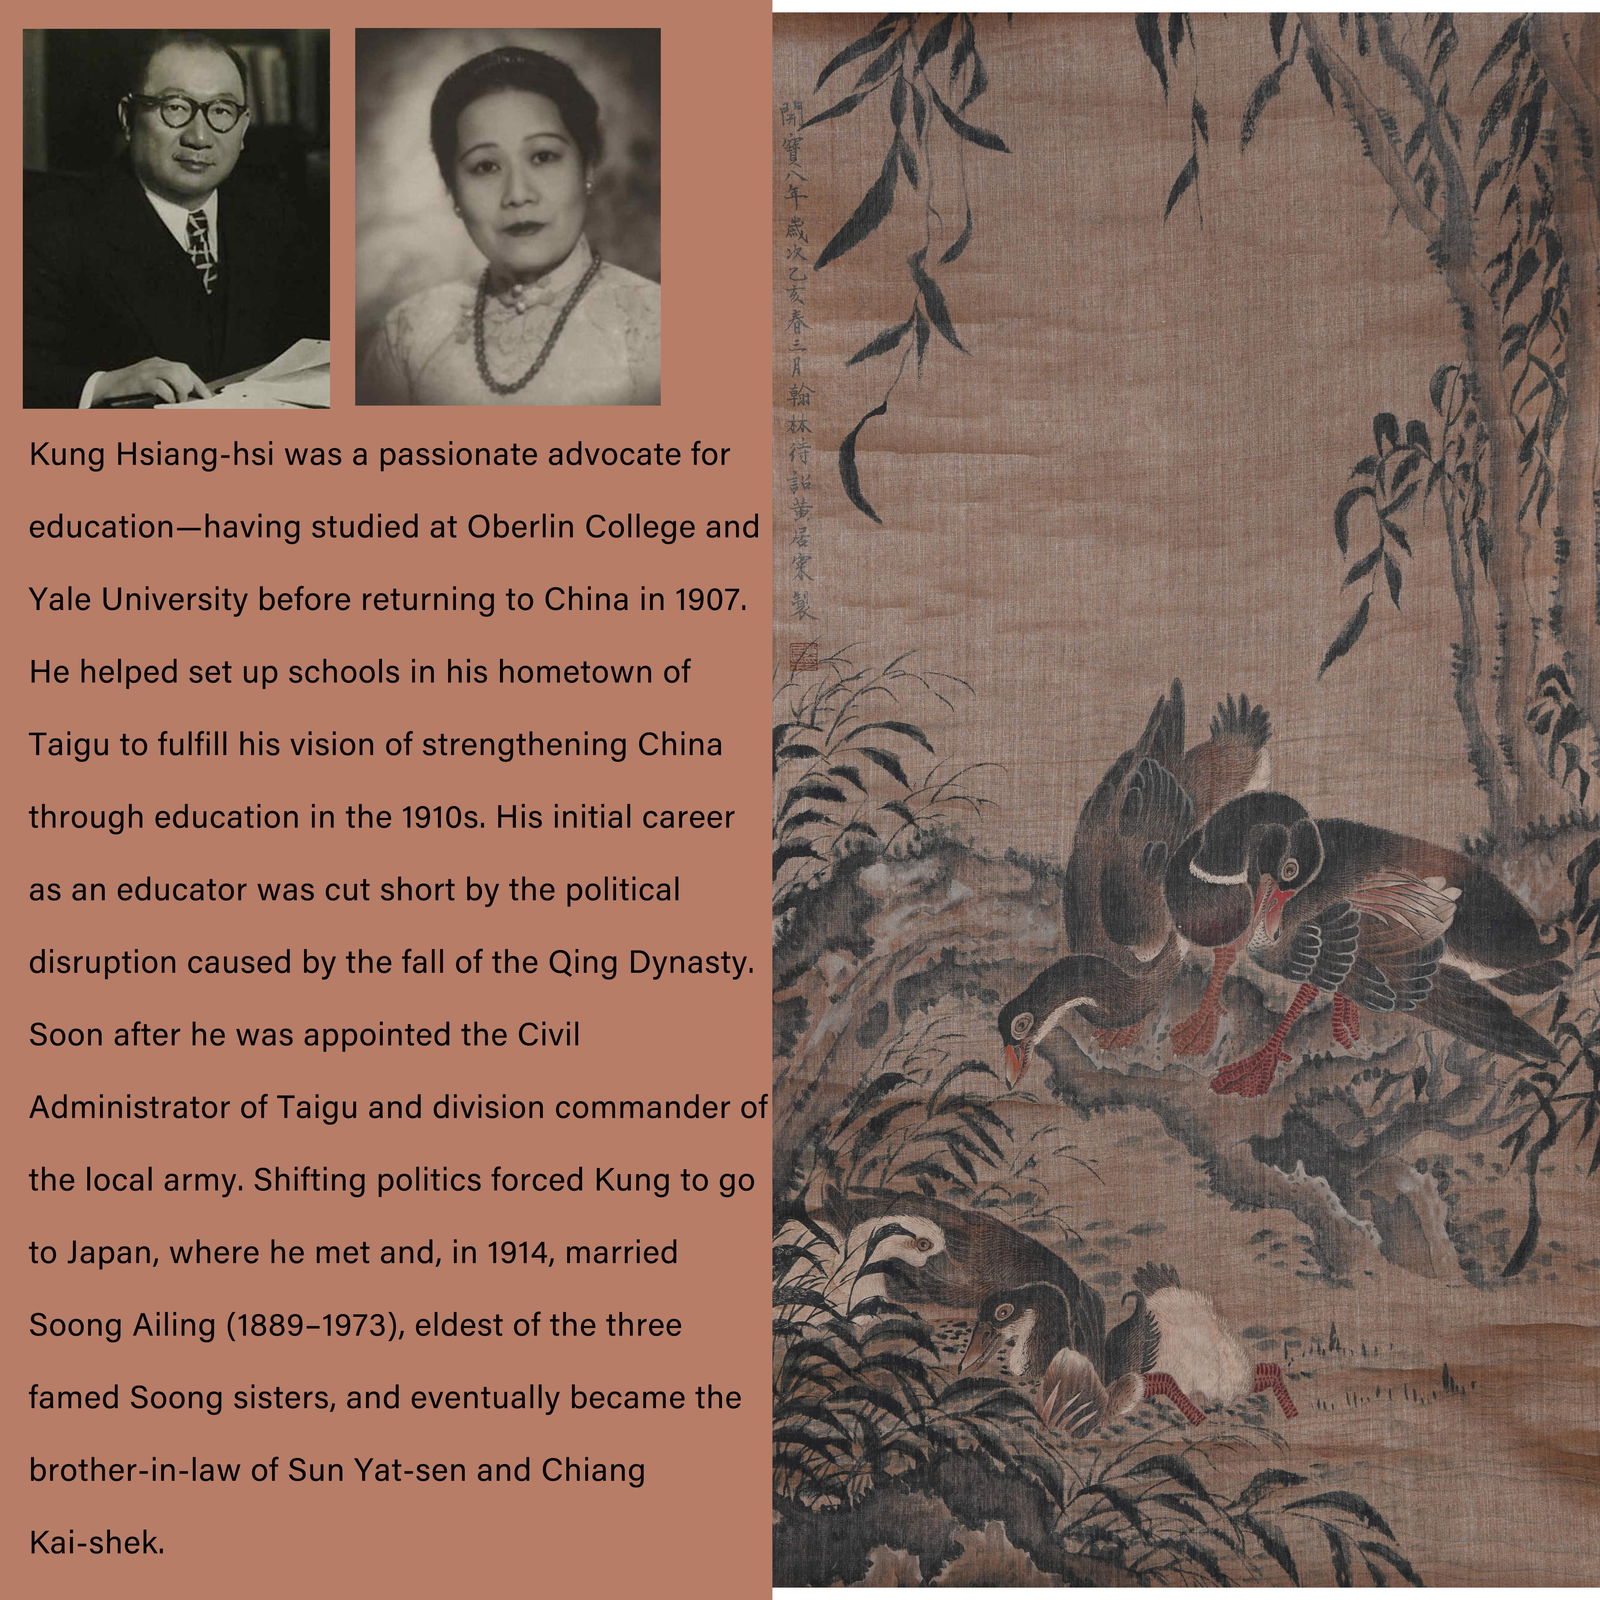 Kung Hsiang-hsi was a passionate advocate for
education—having studied at Oberlin College and
Yale University before returning to China in 1907.
He helped set up schools in his hometown of
Taigu to fulfill his vision of strengthening China
through education in the 1910s. His initial career
as an educator was cut short by the political
disruption caused by the fall of the Qing Dynasty.
Soon after he was appointed the Civil
Administrator of Taigu and division commander of
the local army. Shifting politics forced Kung to go
to Japan, where he met and, in 1914, married
Soong Ailing (1889–1973), eldest of the three
famed Soong sisters, and eventually became the
brother-in-law of Sun Yat-sen and Chiang
Kai-shek.
開寶八年歲次乙亥春三月翰林待詔黃居寀製